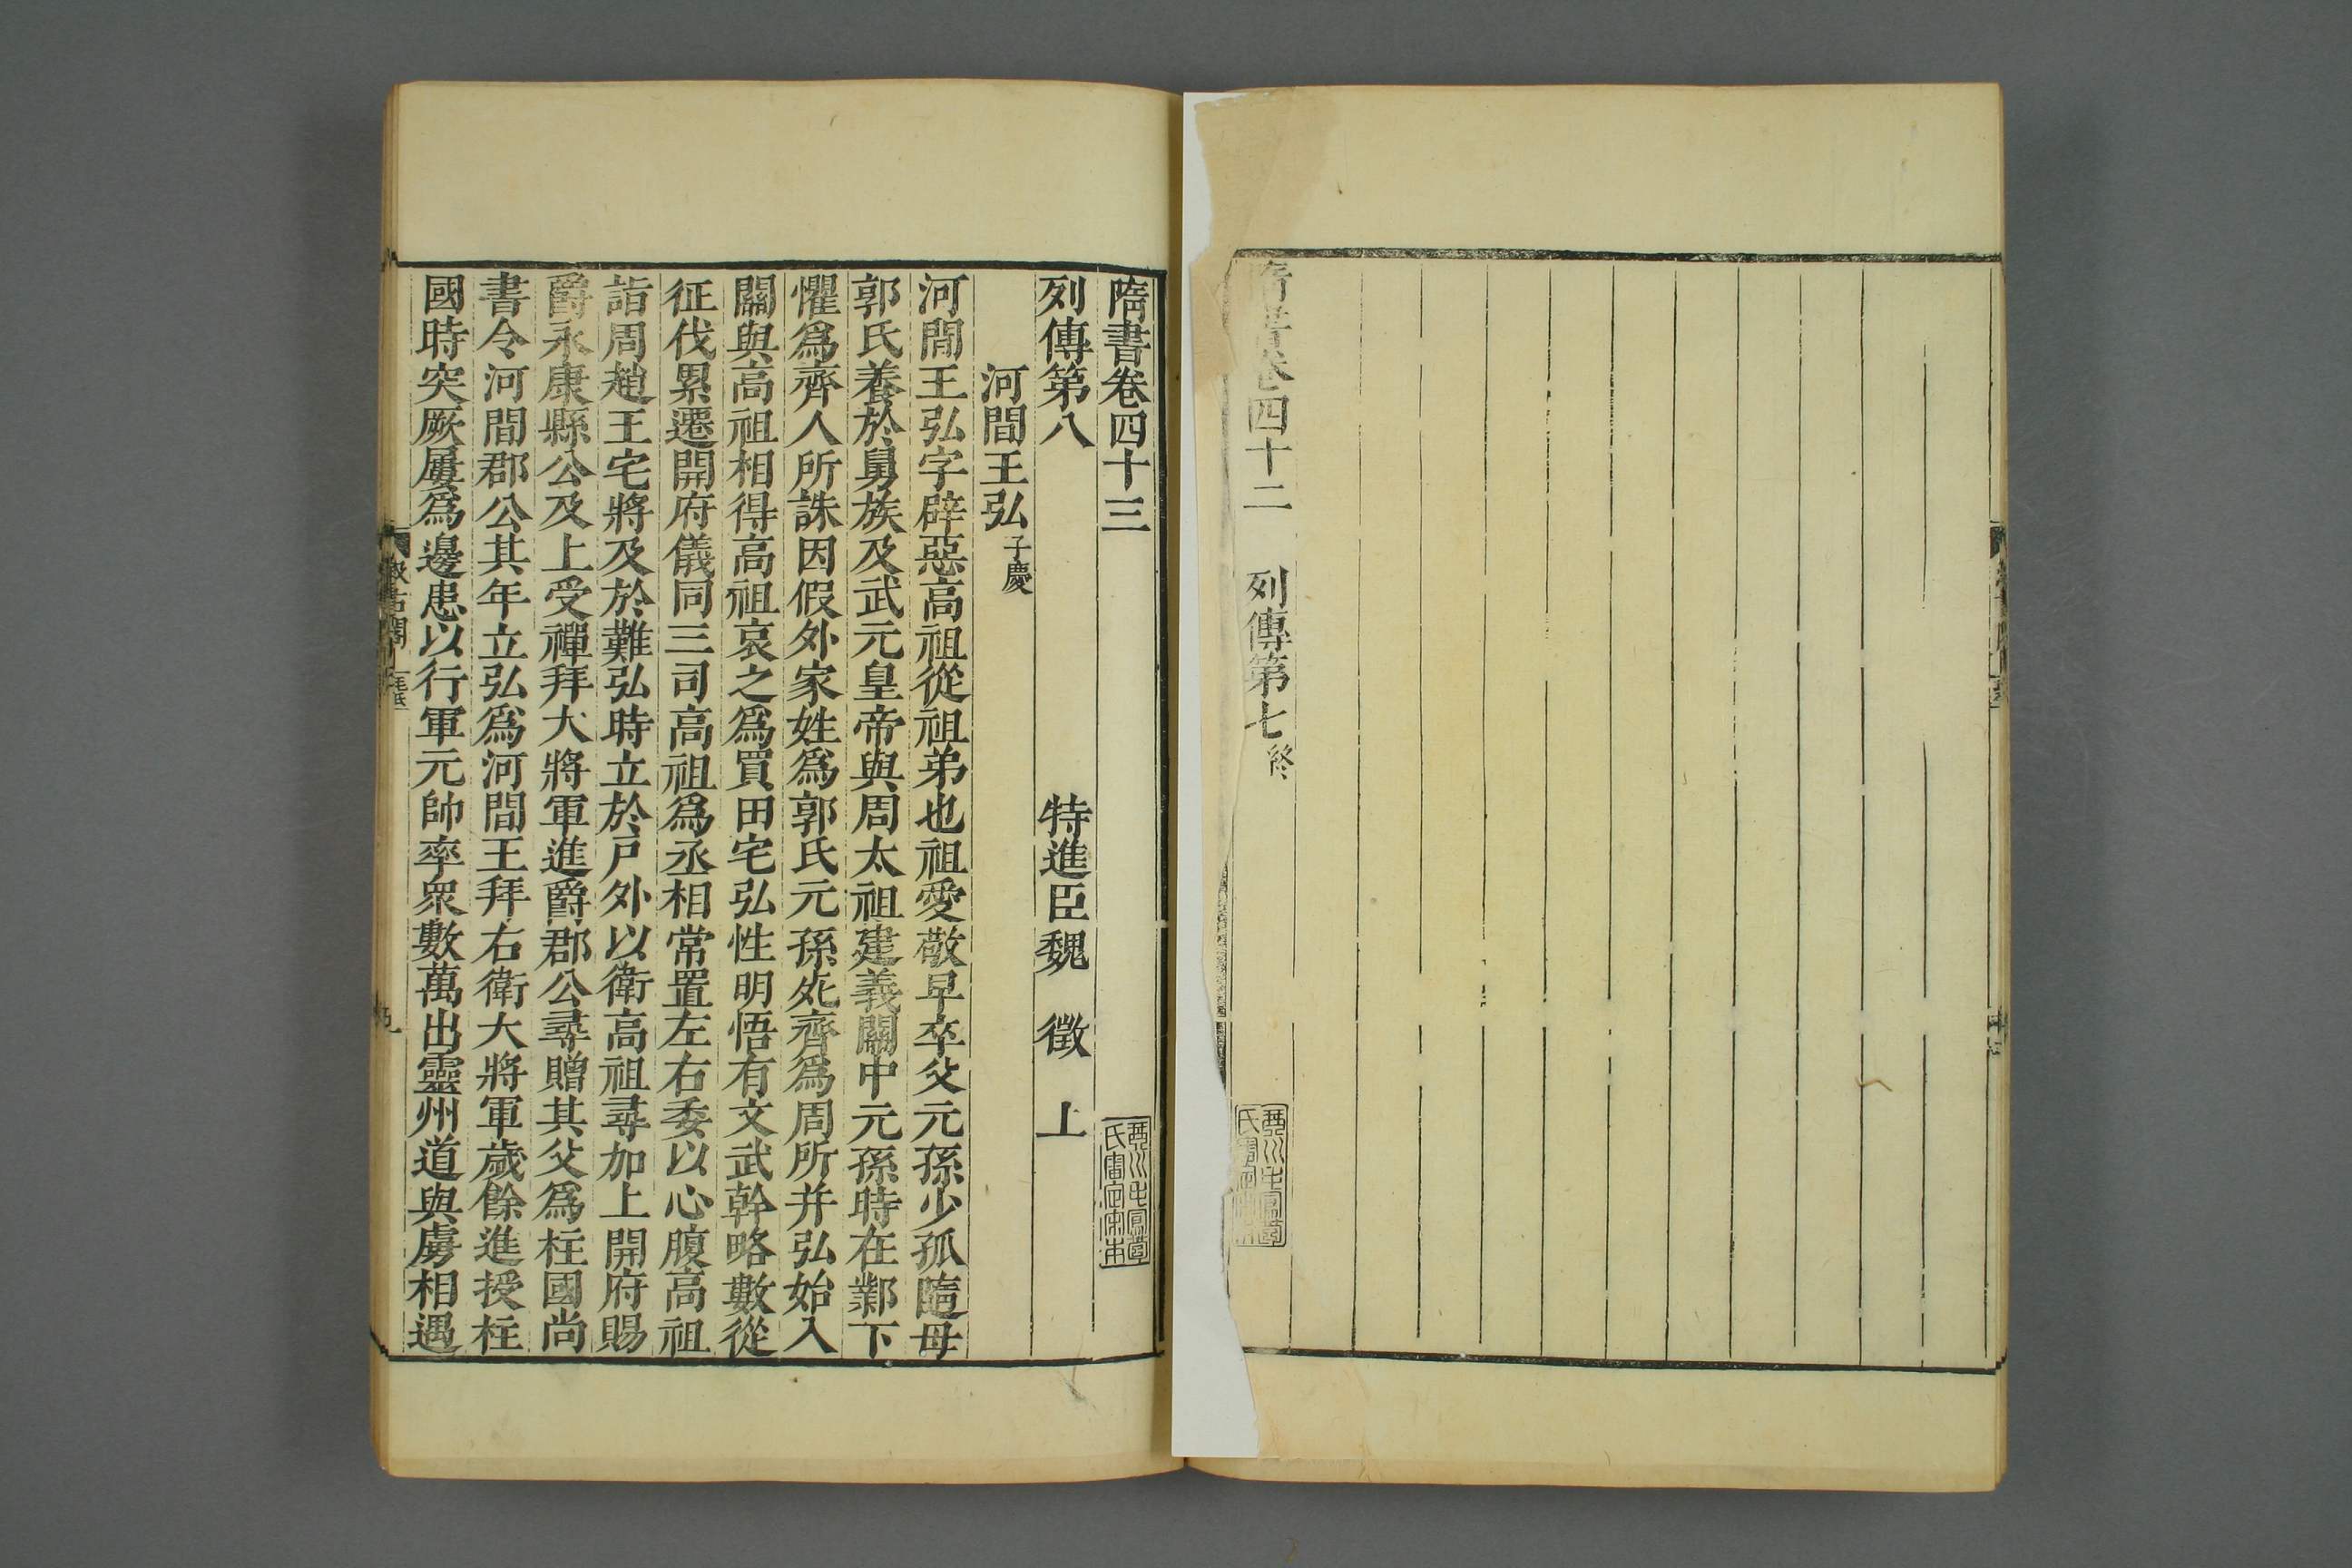 隋書卷四十二　列傳第七終
隋書卷四十三
列傳第八　特進臣魏　徵　上
河間王弘子慶
河間王弘字辟惡高祖從祖弟也祖愛敬早卒父元孫少孤隨母
郭氏養於舅族及武元皇帝與周太祖建義關中元孫時在鄴下
懼爲齊人所誅因假外家姓爲郭氏元孫死齊爲周所并弘始入
關與高祖相得高祖哀之爲買田宅弘性明悟有文武幹略數從
征伐累遷開府儀同三司高祖爲丞相常置左右委以心腹高祖
詣周趙王宅將及於難弘時立於戶外以衛高祖尋加上開府賜
爵永康縣公及上受禪拜大將軍進爵郡公尋贈其父爲柱國尚
書令河間郡公其年立弘爲河間王拜右衛大將軍歲餘進授柱
國時突厥屢爲邊患以行軍元帥率眾數萬出靈州道與虜相遇